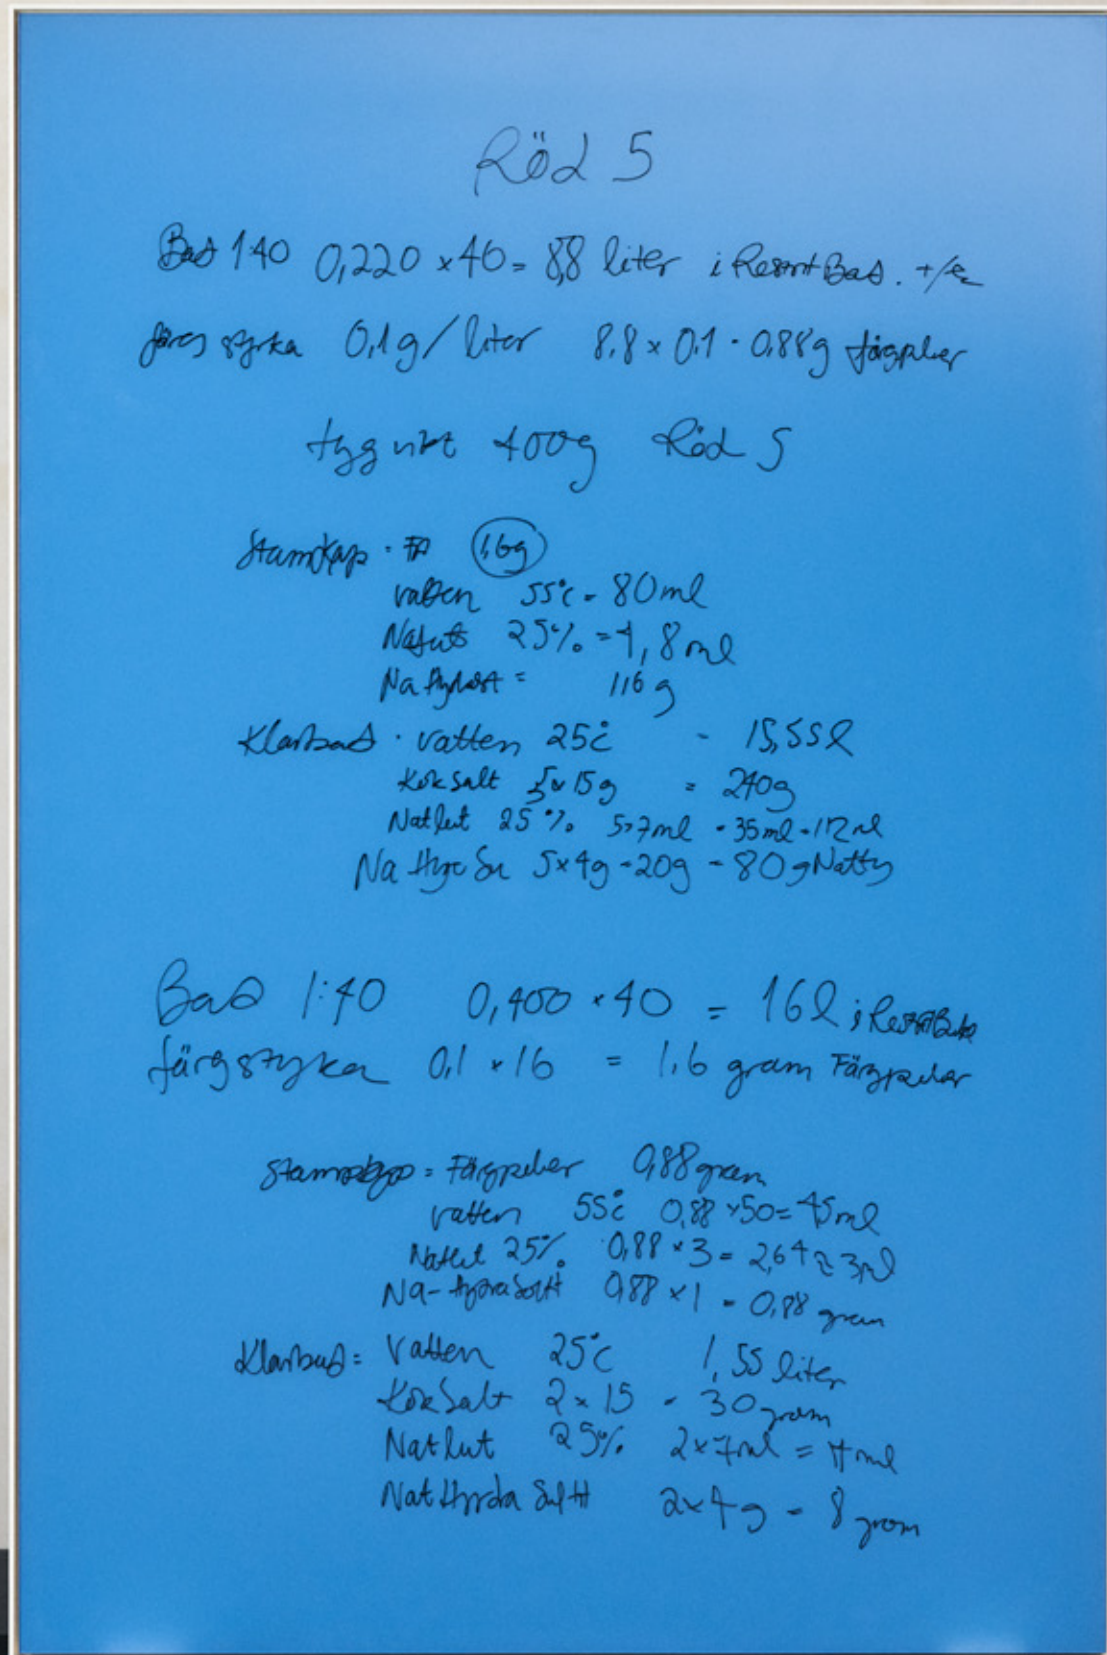 Röd 5
Bad 1:40 0,220 × 40 = 8,8 liter i Bad. +/
färg styrka 0,1g/liter 8.8 × 0.1 - 0,88g färgpulver
tyg vikt 400g Röd 5
Stamkyp = 1,6g
vatten 55°C - 80ml
Natlut 25% = 4,8 ml
Na = 1,16 g
Klarbad - vatten 25°C - 15,55l
Kok Salt 5x15g = 240g
Natlut 25 % 5×7ml - 35ml - 112 ml
Na 5×4g - 20g - 80g
Bad 1:40 0,400 × 40 = 16l i
färgstyrka 0,1 × 16 = 1,6 gram Färgpulver
= Färgpulver 0,88 gram
vatten 55°C 0,88 ×50 = 45ml
Natlut 25% 0,88 × 3 = 2,64 ≈ 3ml
Na- 0,88 × 1 - 0,88 gram
Klarbad = Vatten 25°C 1,55 liter
Kok Salt 2 × 15 - 30 gram
Natlut 25% 2×7ml = 14 ml
Nat 2×4 g - 8 gram